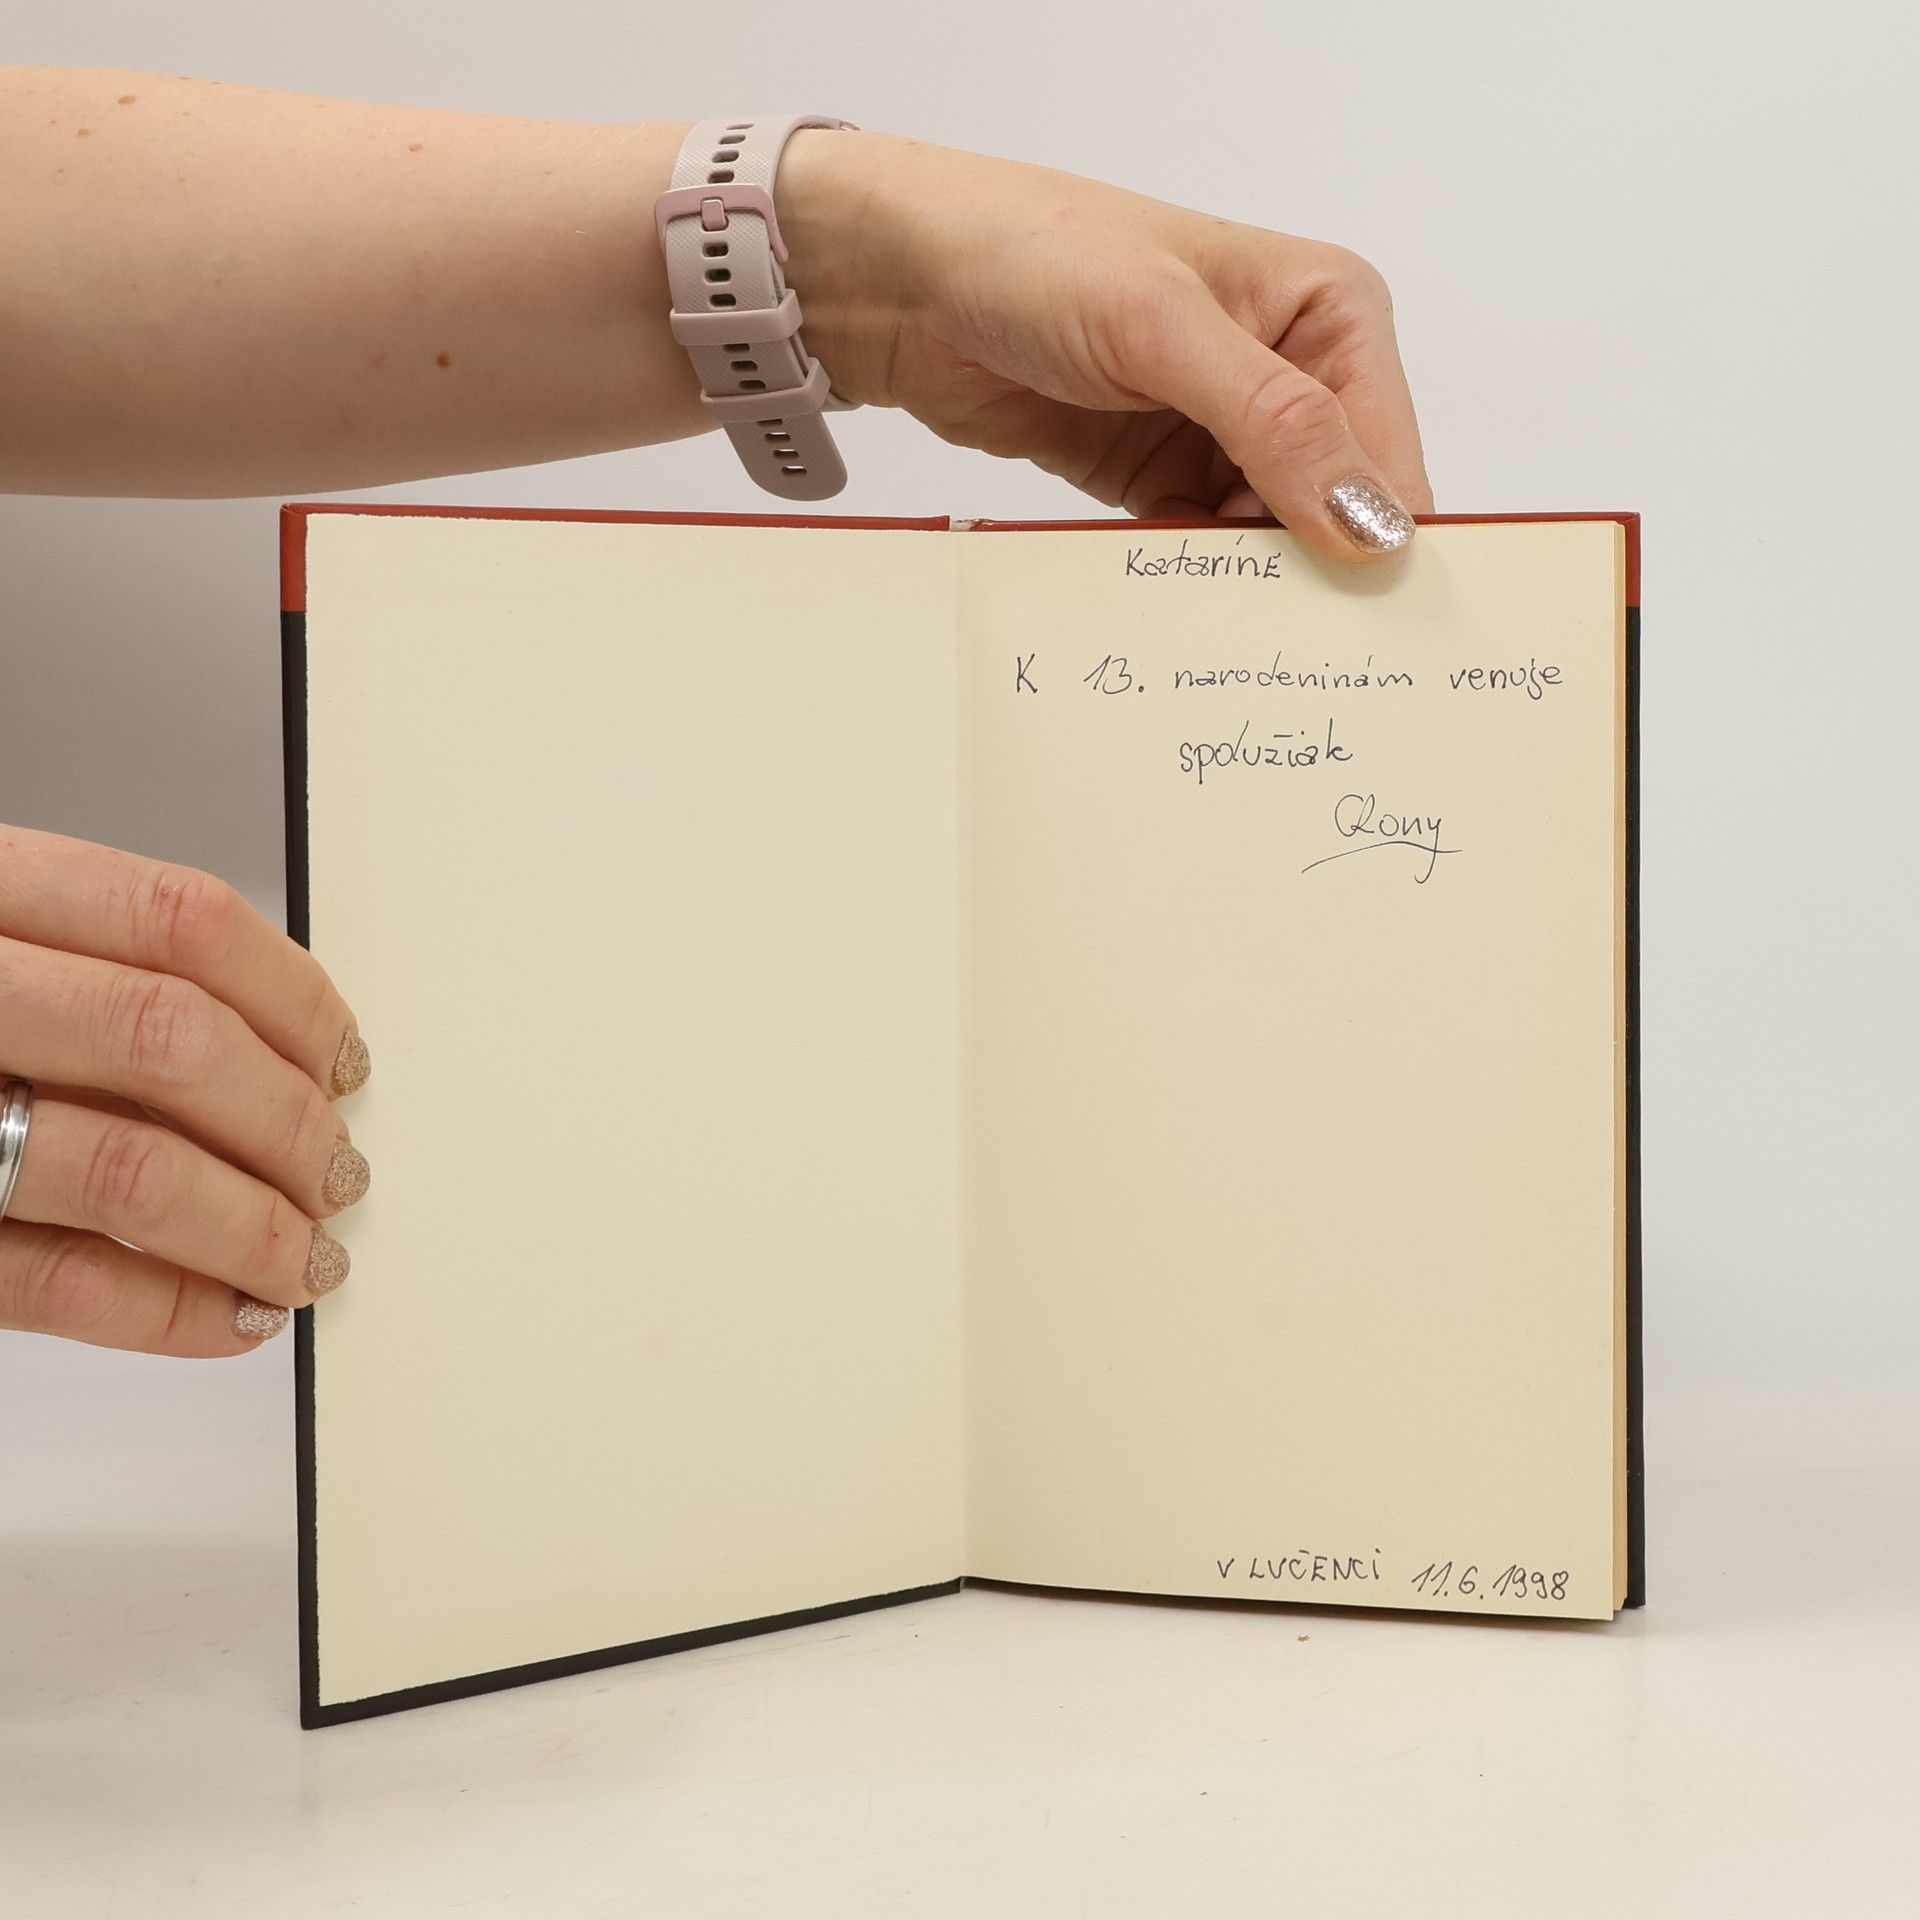 Kataríne
K 13. narodeninám venuje
spolužiak
Rony
V LUČENCI 11.6.1998